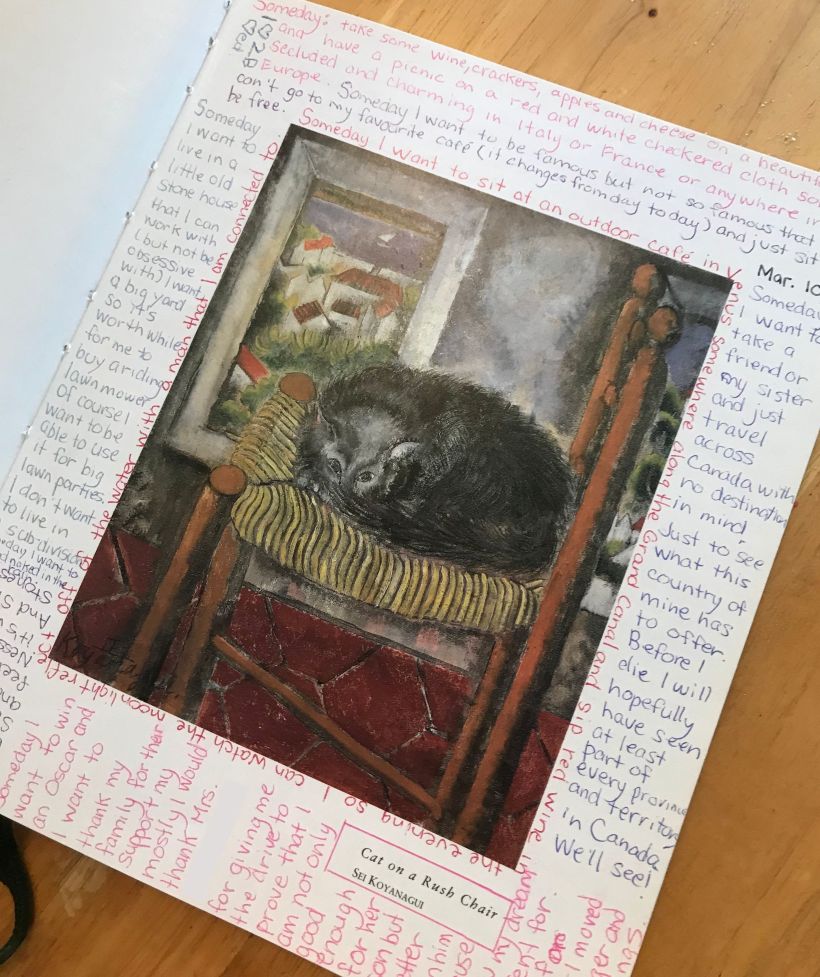 Someday: take some wine, crackers, apples and cheese on a beautiful
and have a picnic on a red and white checkered cloth
secluded and charming in Italy or France or anywhere in
Europe. Someday I want to be famous but not so famous that
can't go to my favourite café (it changes from day to day) and just sit
be free.
Someday I want to sit at an outdoor café in Venus somewhere along the Grand Canal and sip red wine in
the evening so I can watch the moonlight
the water with a man that I am connected to.
Someday
I want to
live in a
little old
stone house
that I can
work with
(but not be
obsessive
with) I want
a big yard
so it's
worth while
for me to
buy a riding
lawn mower
Of course I
want to be
able to use
it for big
lawn parties.
I don't want
to live in
subdivision
I want to
naked in the
Mar. 10
Someday
I want to
take a
friend or
my sister
and just
travel
across
Canada with
no destination
in mind.
Just to see
what this
country of
mine has
to offer.
Before I
die I will
hopefully
have seen
at least
part of
every province
and territory
in Canada
We'll see!
Someday I
want to win
an Oscar and
I want to
thank my
family for their
support my
mostly I would
thank Mrs.
for giving me
the drive to
prove that I
am not only
good
enough
for her
son but
my dream
for
I moved
and
Koyanagui
Cat on a Rush Chair
SEI KOYANAGUI